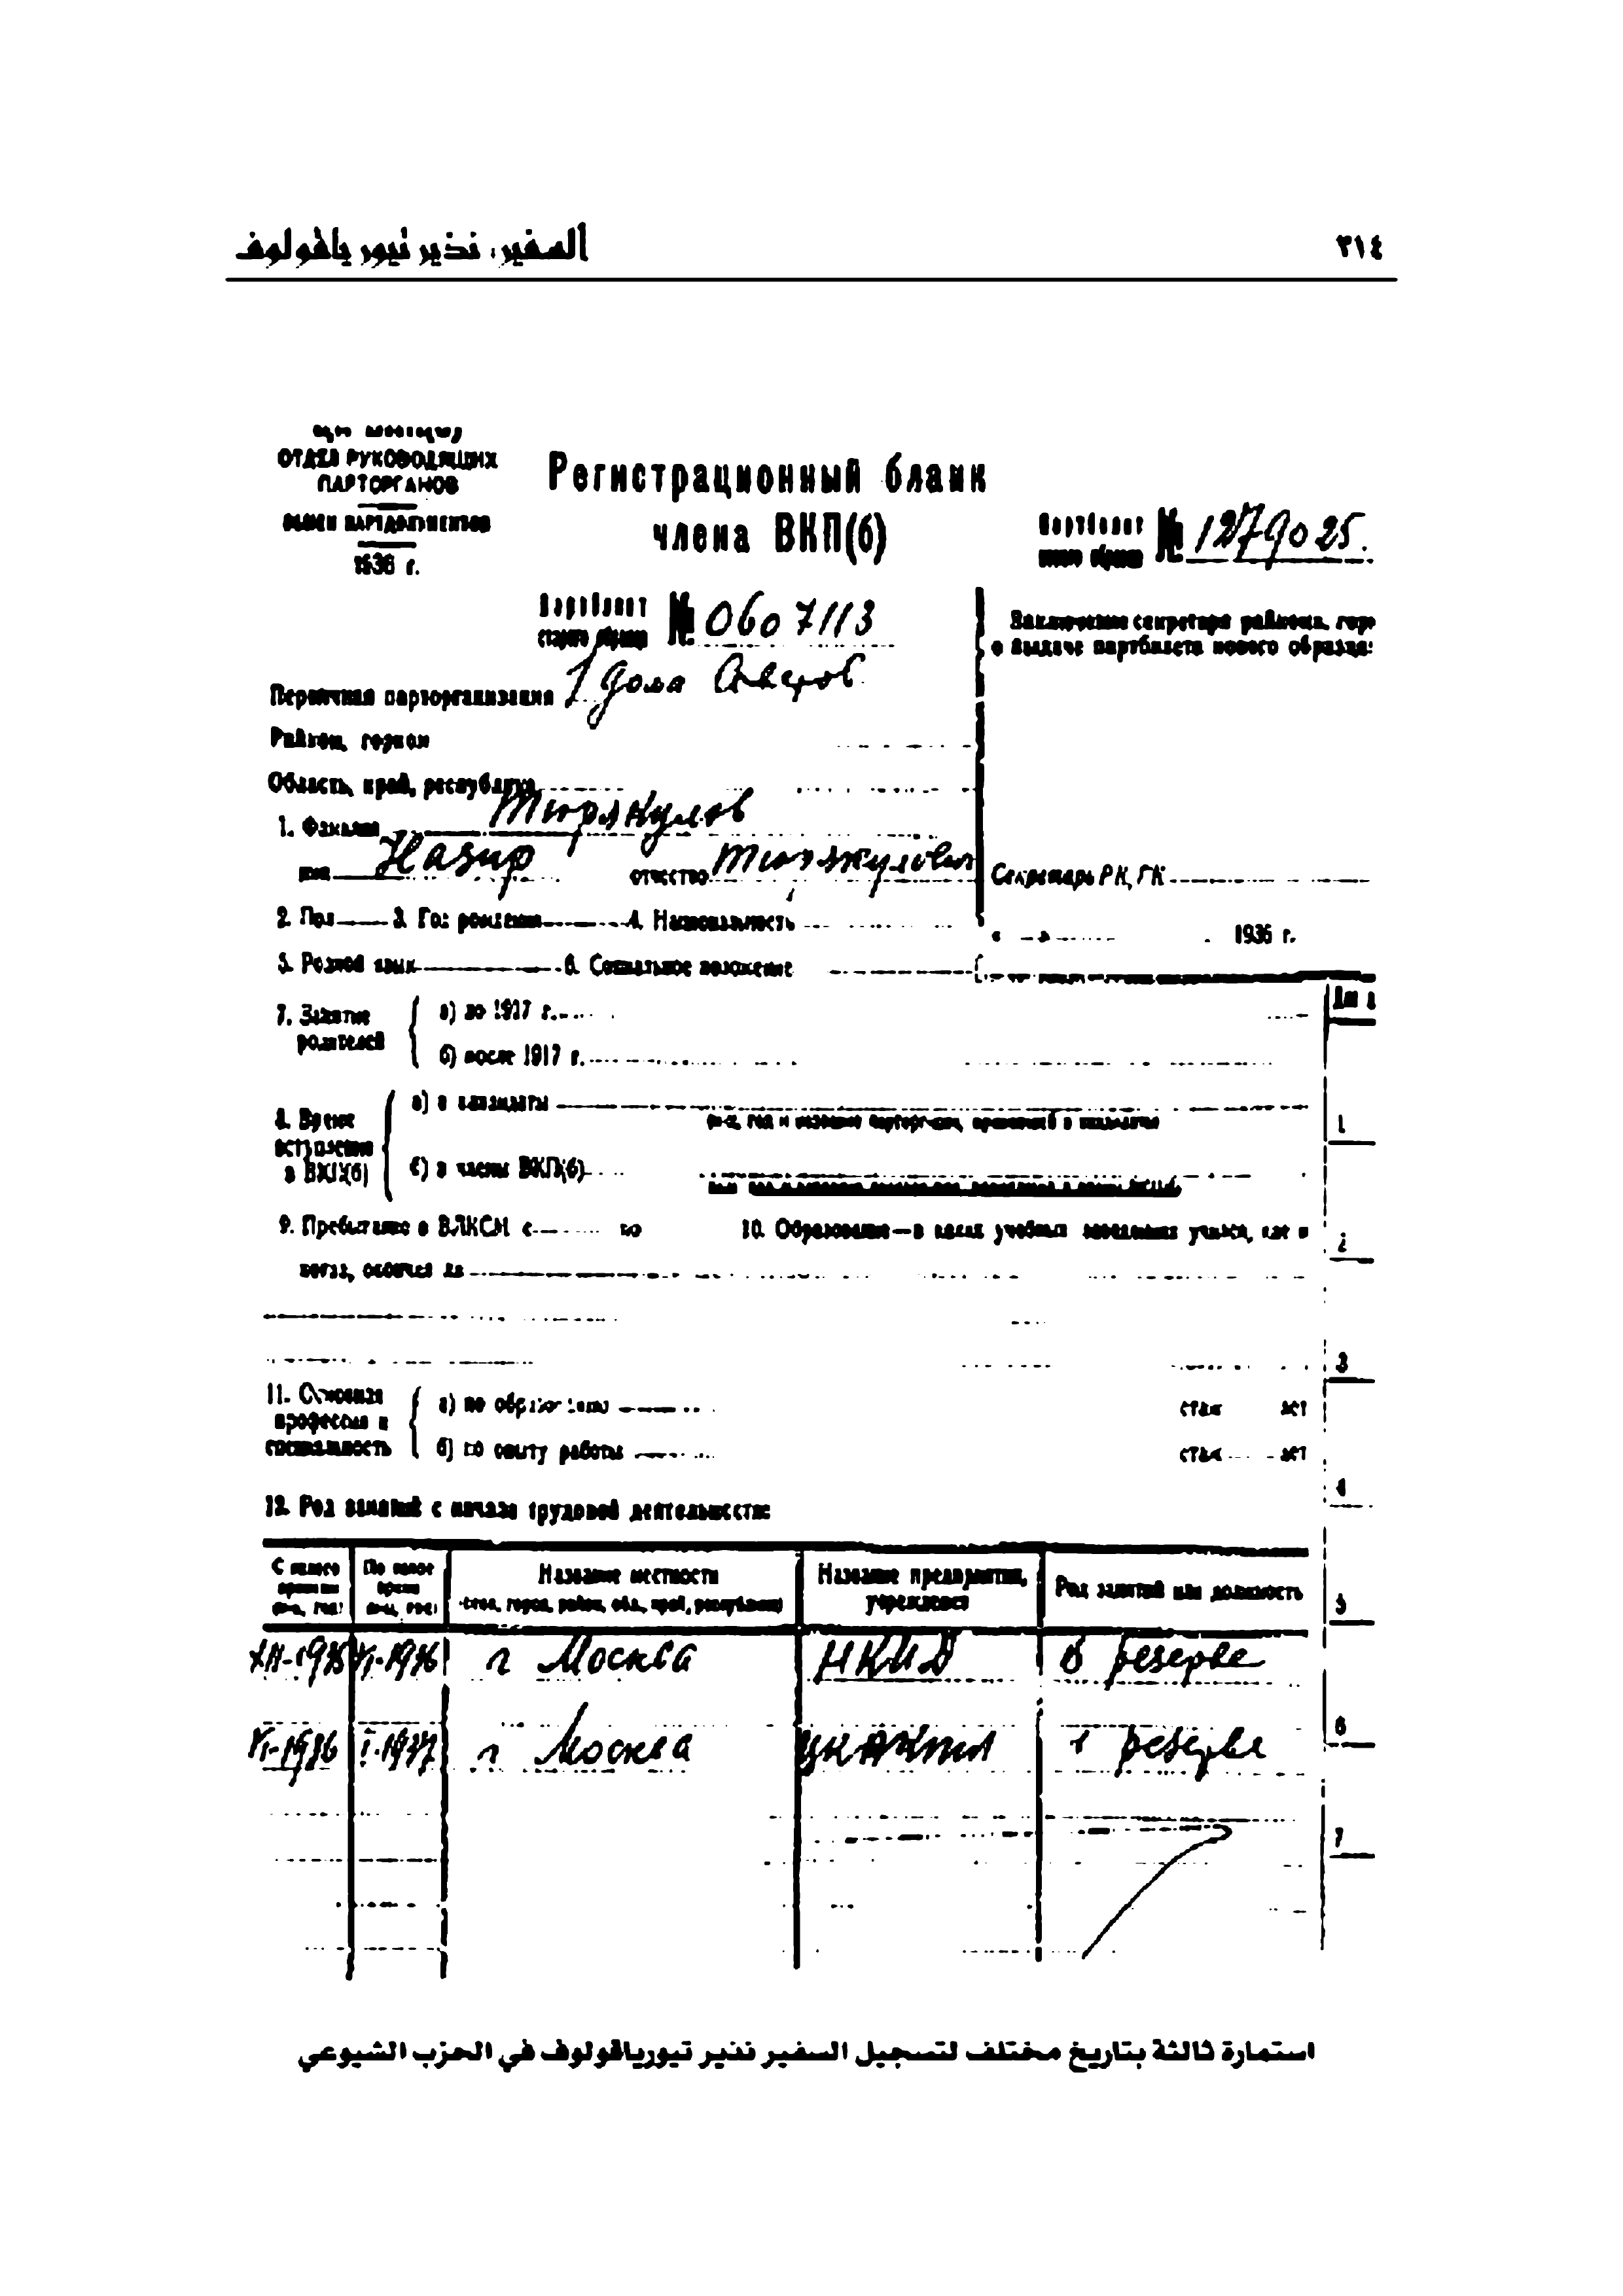 السفير، نذير تيور ياقولوف ٣١٤
ОТДЕЛ РУКОВОДЯЩИХ
ПАРТОРГАНОВ
ОБМЕН ПАРТДОКУМЕНТОВ
1936 г.
Регистрационный бланк
члена ВКП(б)
Партбилет
нового образца № 1279025.
Партбилет
старого образца № 0607113
Заключение секретаря райкома, гор
о выдаче партбилета нового образца:
Первичная парторганизация 1 дома
Райком, горком
Область, край, республика
1. Фамилия Тюрякулов
имя Назир отчество Тюрякулович
Секретарь РК, ГК
1936 г.
2. Пол 3. Год рождения 4. Национальность
5. Родной язык 6. Социальное положение
7. Занятие
родителей
а) до 1917 г.
б) после 1917 г.
8. Время
вступления
в ВКП(б)
а) в кандидаты
б) в члены ВКП(б)
9. Пребывание в ВЛКСМ с по 10. Образование — в каких учебных заведениях учился, где и
когда, окончил ли
11. Основная
профессия и
специальность
а) по образованию стаж лет
б) по опыту работы стаж лет
12. Род занятий с начала трудовой деятельности:
С какого
времени
(м-ц, год)
По какое
время
(м-ц, год)
Название местности
(село, город, район, обл., край, республика)
Название предприятия,
учреждения
Род занятий или должность
г Москва НКИД В резерве
VI-1936 I-1937 г Москва в резерве
1
2
3
4
5
6
7
استمارة ثالثة بتاريخ مختلف لتسجيل السفير نذير تيورياقولوف في الحزب الشيوعي